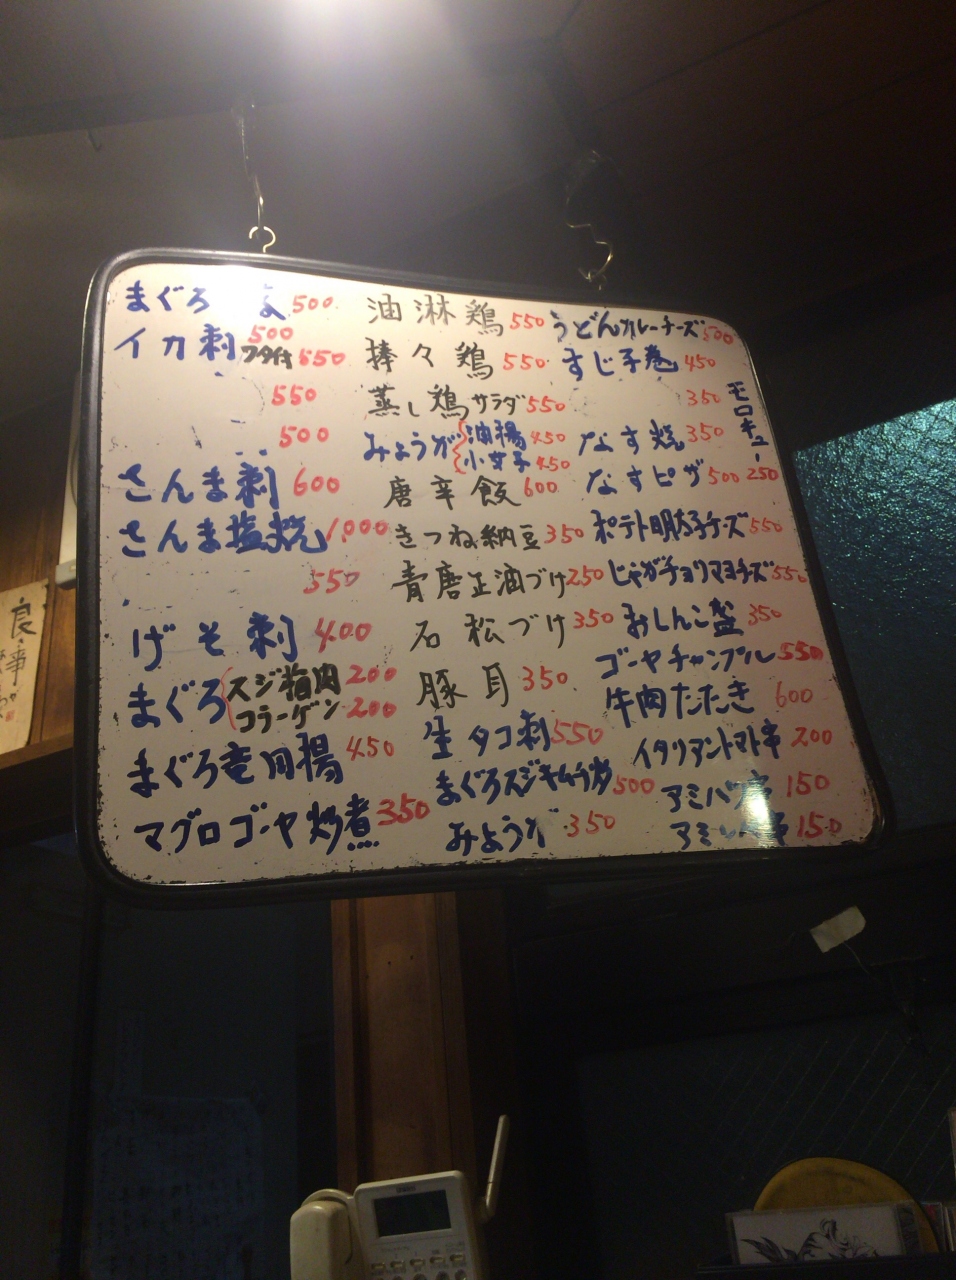 まぐろ 500
イカ刺 500
ワタ付 550
550
500
さんま刺 600
さんま塩焼 1,000
550
げそ刺 400
まぐろ スジ煮肉 200
コラーゲン 200
まぐろ竜田揚 450
マグロゴーヤ炒煮 350
油淋鶏 550
捧々鶏 550
蒸し鶏サラダ 550
みょうが 油揚 450
小女子 450
唐辛飯 600
きつね納豆 350
青唐正油づけ 250
石松づけ 350
豚耳 350
生タコ刺 550
まぐろスジキムチ炒 500
みょうが 350
うどんカレーチーズ 500
すじ子巻 450
350
なす焼 350
なすピザ 500
モロキュー 250
ポテト明太子チーズ 550
じゃがチョリマヨチーズ 550
おしんこ盛 350
ゴーヤチャンプル 550
牛肉たたき 600
イタリアントマト串 200
アミバラ串 150
アミ 串 150
良い事